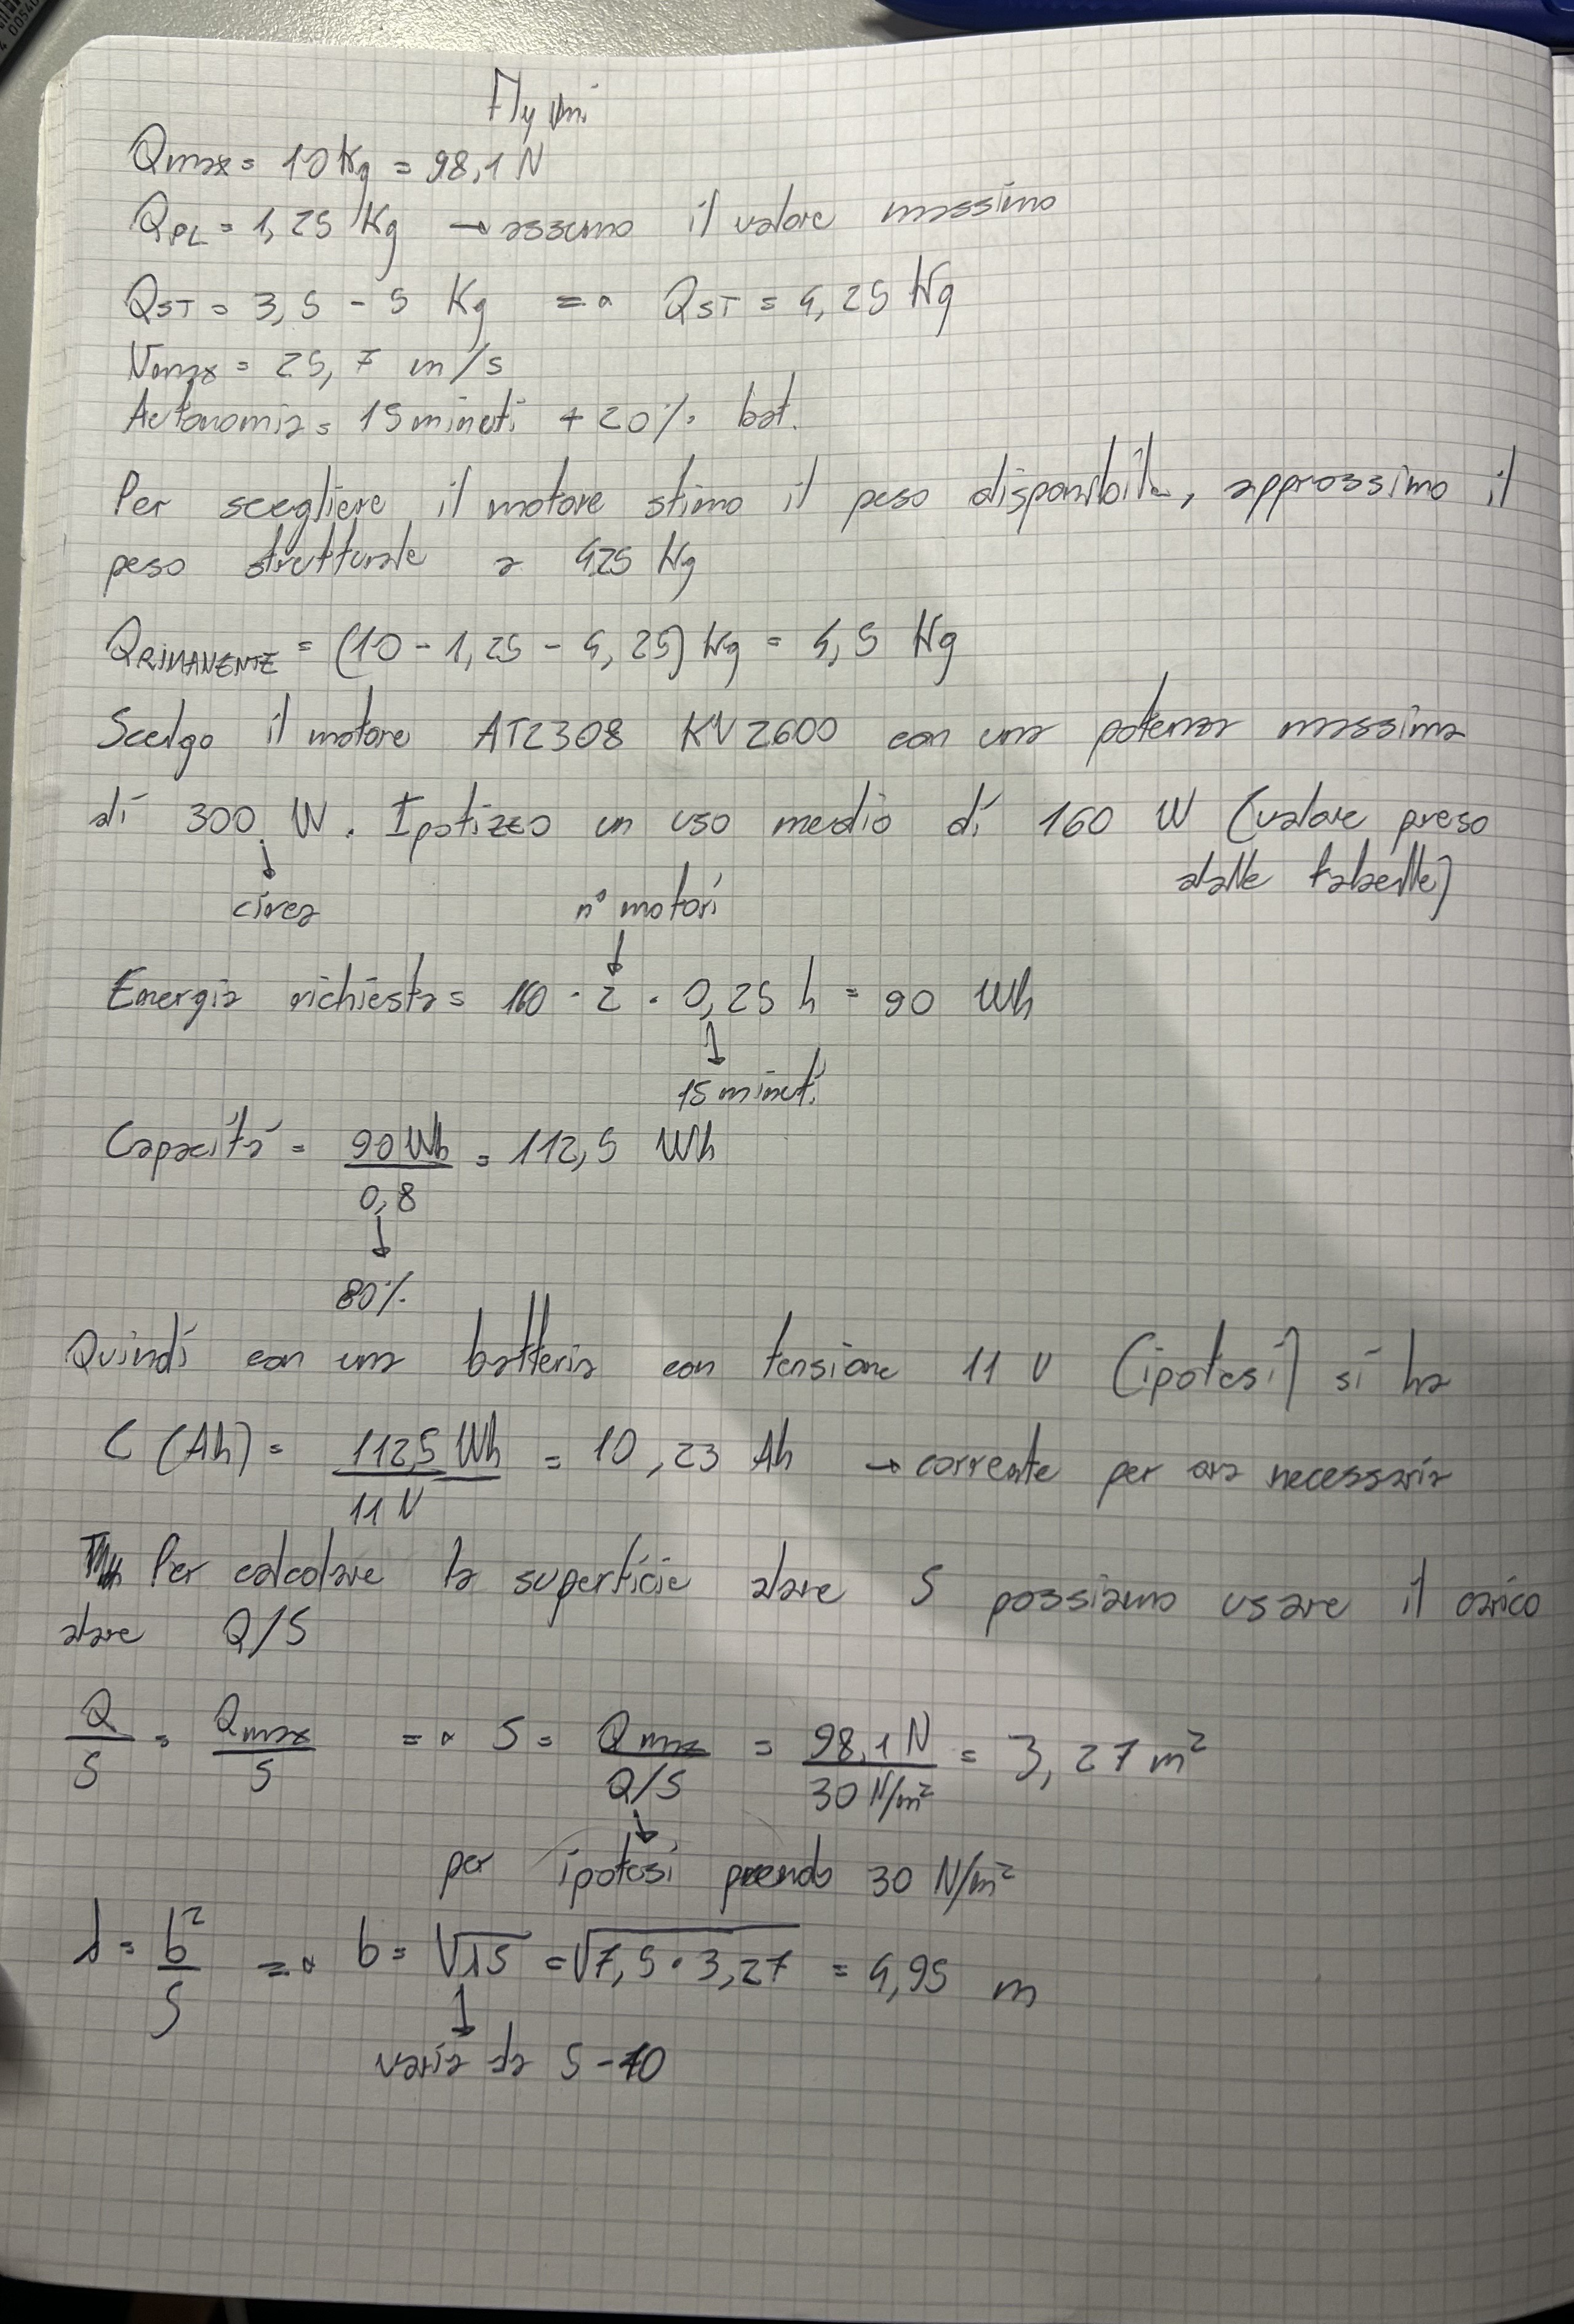 Fly Uni
Qmax = 10 Kg = 98,1 N
QPL = 1,25 Kg → assumo il valore massimo
QST = 3,5 - 5 Kg => QST = 4,25 Kg
Vmax = 25,7 m/s
Autonomia = 15 minuti + 20% bat.
Per scegliere il motore stimo il peso disponibile, approssimo il
peso strutturale a 4,25 Kg
QRIMANENTE = (10 - 1,25 - 4,25) Kg = 4,5 Kg
Scelgo il motore AT2308 KV2600 con una potenza massima
di 300 W. Ipotizzo un uso medio di 160 W (valore preso
dalle tabelle)
↓
circa
n° motori
↓
Energia richiesta = 160 · 2 · 0,25 h = 90 Wh
↓
15 minuti
Capacità = 90 Wh / 0,8 = 112,5 Wh
↓
80%
Quindi con una batteria con tensione 11 V (ipotesi) si ha
C (Ah) = 112,5 Wh / 11 V = 10,23 Ah → corrente per ora necessaria
Per calcolare la superficie alare S possiamo usare il carico
alare Q/S
Q/S = Qmax/S => S = Qmax / Q/S = 98,1 N / 30 N/m² = 3,27 m²
↓
per ipotesi prendo 30 N/m²
λ = b²/S => b = √λS = √7,5 · 3,27 = 4,95 m
↓
varia da 5-10